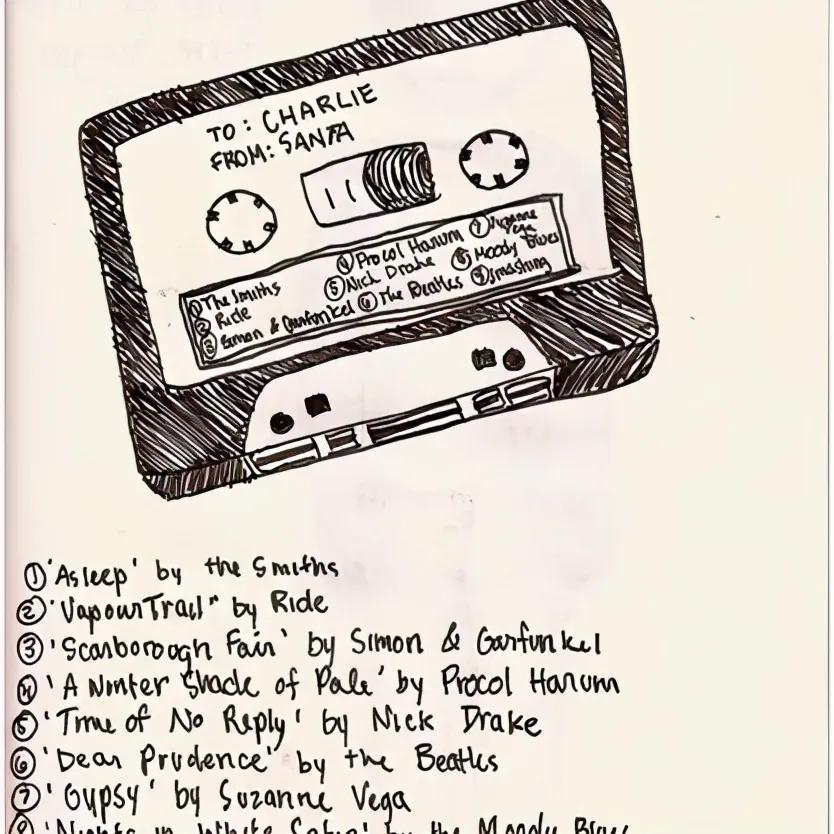 TO: CHARLIE
FROM: SANTA
① The Smiths
② Ride
③ Simon & Garfunkel
④ Procol Harum
⑤ Nick Drake
⑥ The Beatles
⑦ Suzanne Vega
⑧ Moody Blues
⑨ Smashing
① 'Asleep' by the Smiths
② 'Vapour Trail" by Ride
③ 'Scarborough Fair' by Simon & Garfunkel
④ 'A Winter Shade of Pale' by Procol Harum
⑤ 'Time of No Reply' by Nick Drake
⑥ 'Dear Prudence' by the Beatles
⑦ 'Gypsy' by Suzanne Vega
⑧ 'Nights in White Satin' by the Moody Blues